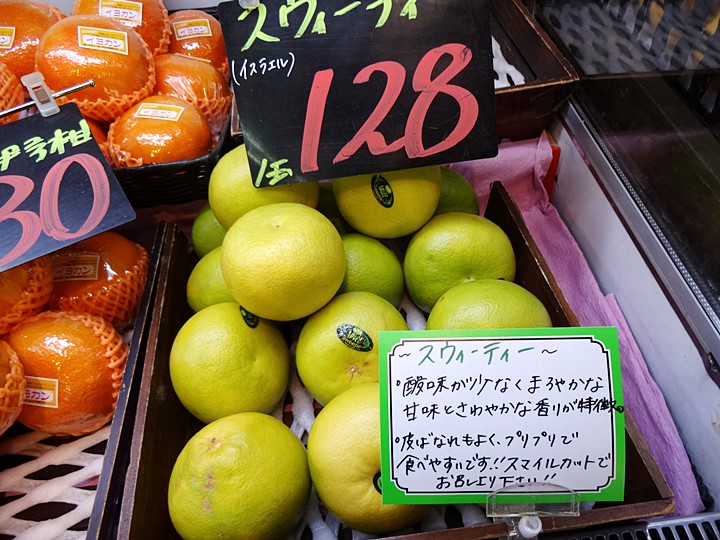 スウィーティ
(イスラエル)
1玉 128
伊予柑
30
イヨカン
イヨカン
イヨカン
イヨカン
イヨカン
~スウィーティー~
・酸味が少なくまろやかな
甘味とさわやかな香りが特徴。
・皮ばなれもよく、プリプリで
食べやすいです!!スマイルカットで
お召し上り下さい!!